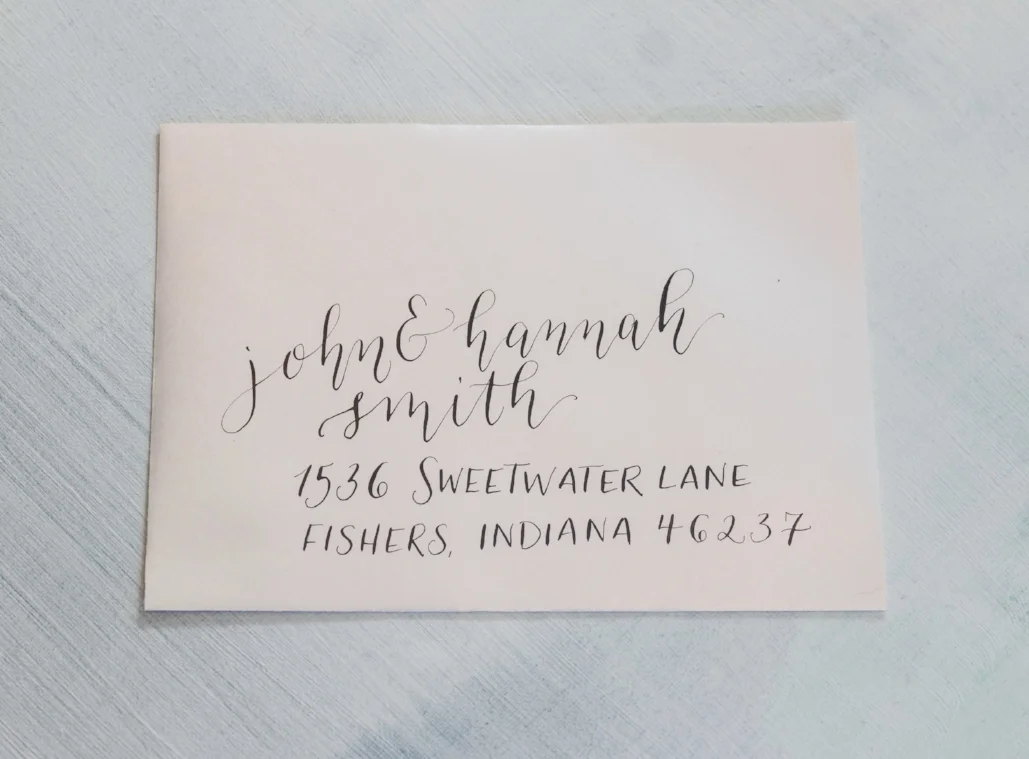 john & hannah
smith
1536 SWEETWATER LANE
FISHERS, INDIANA 46237